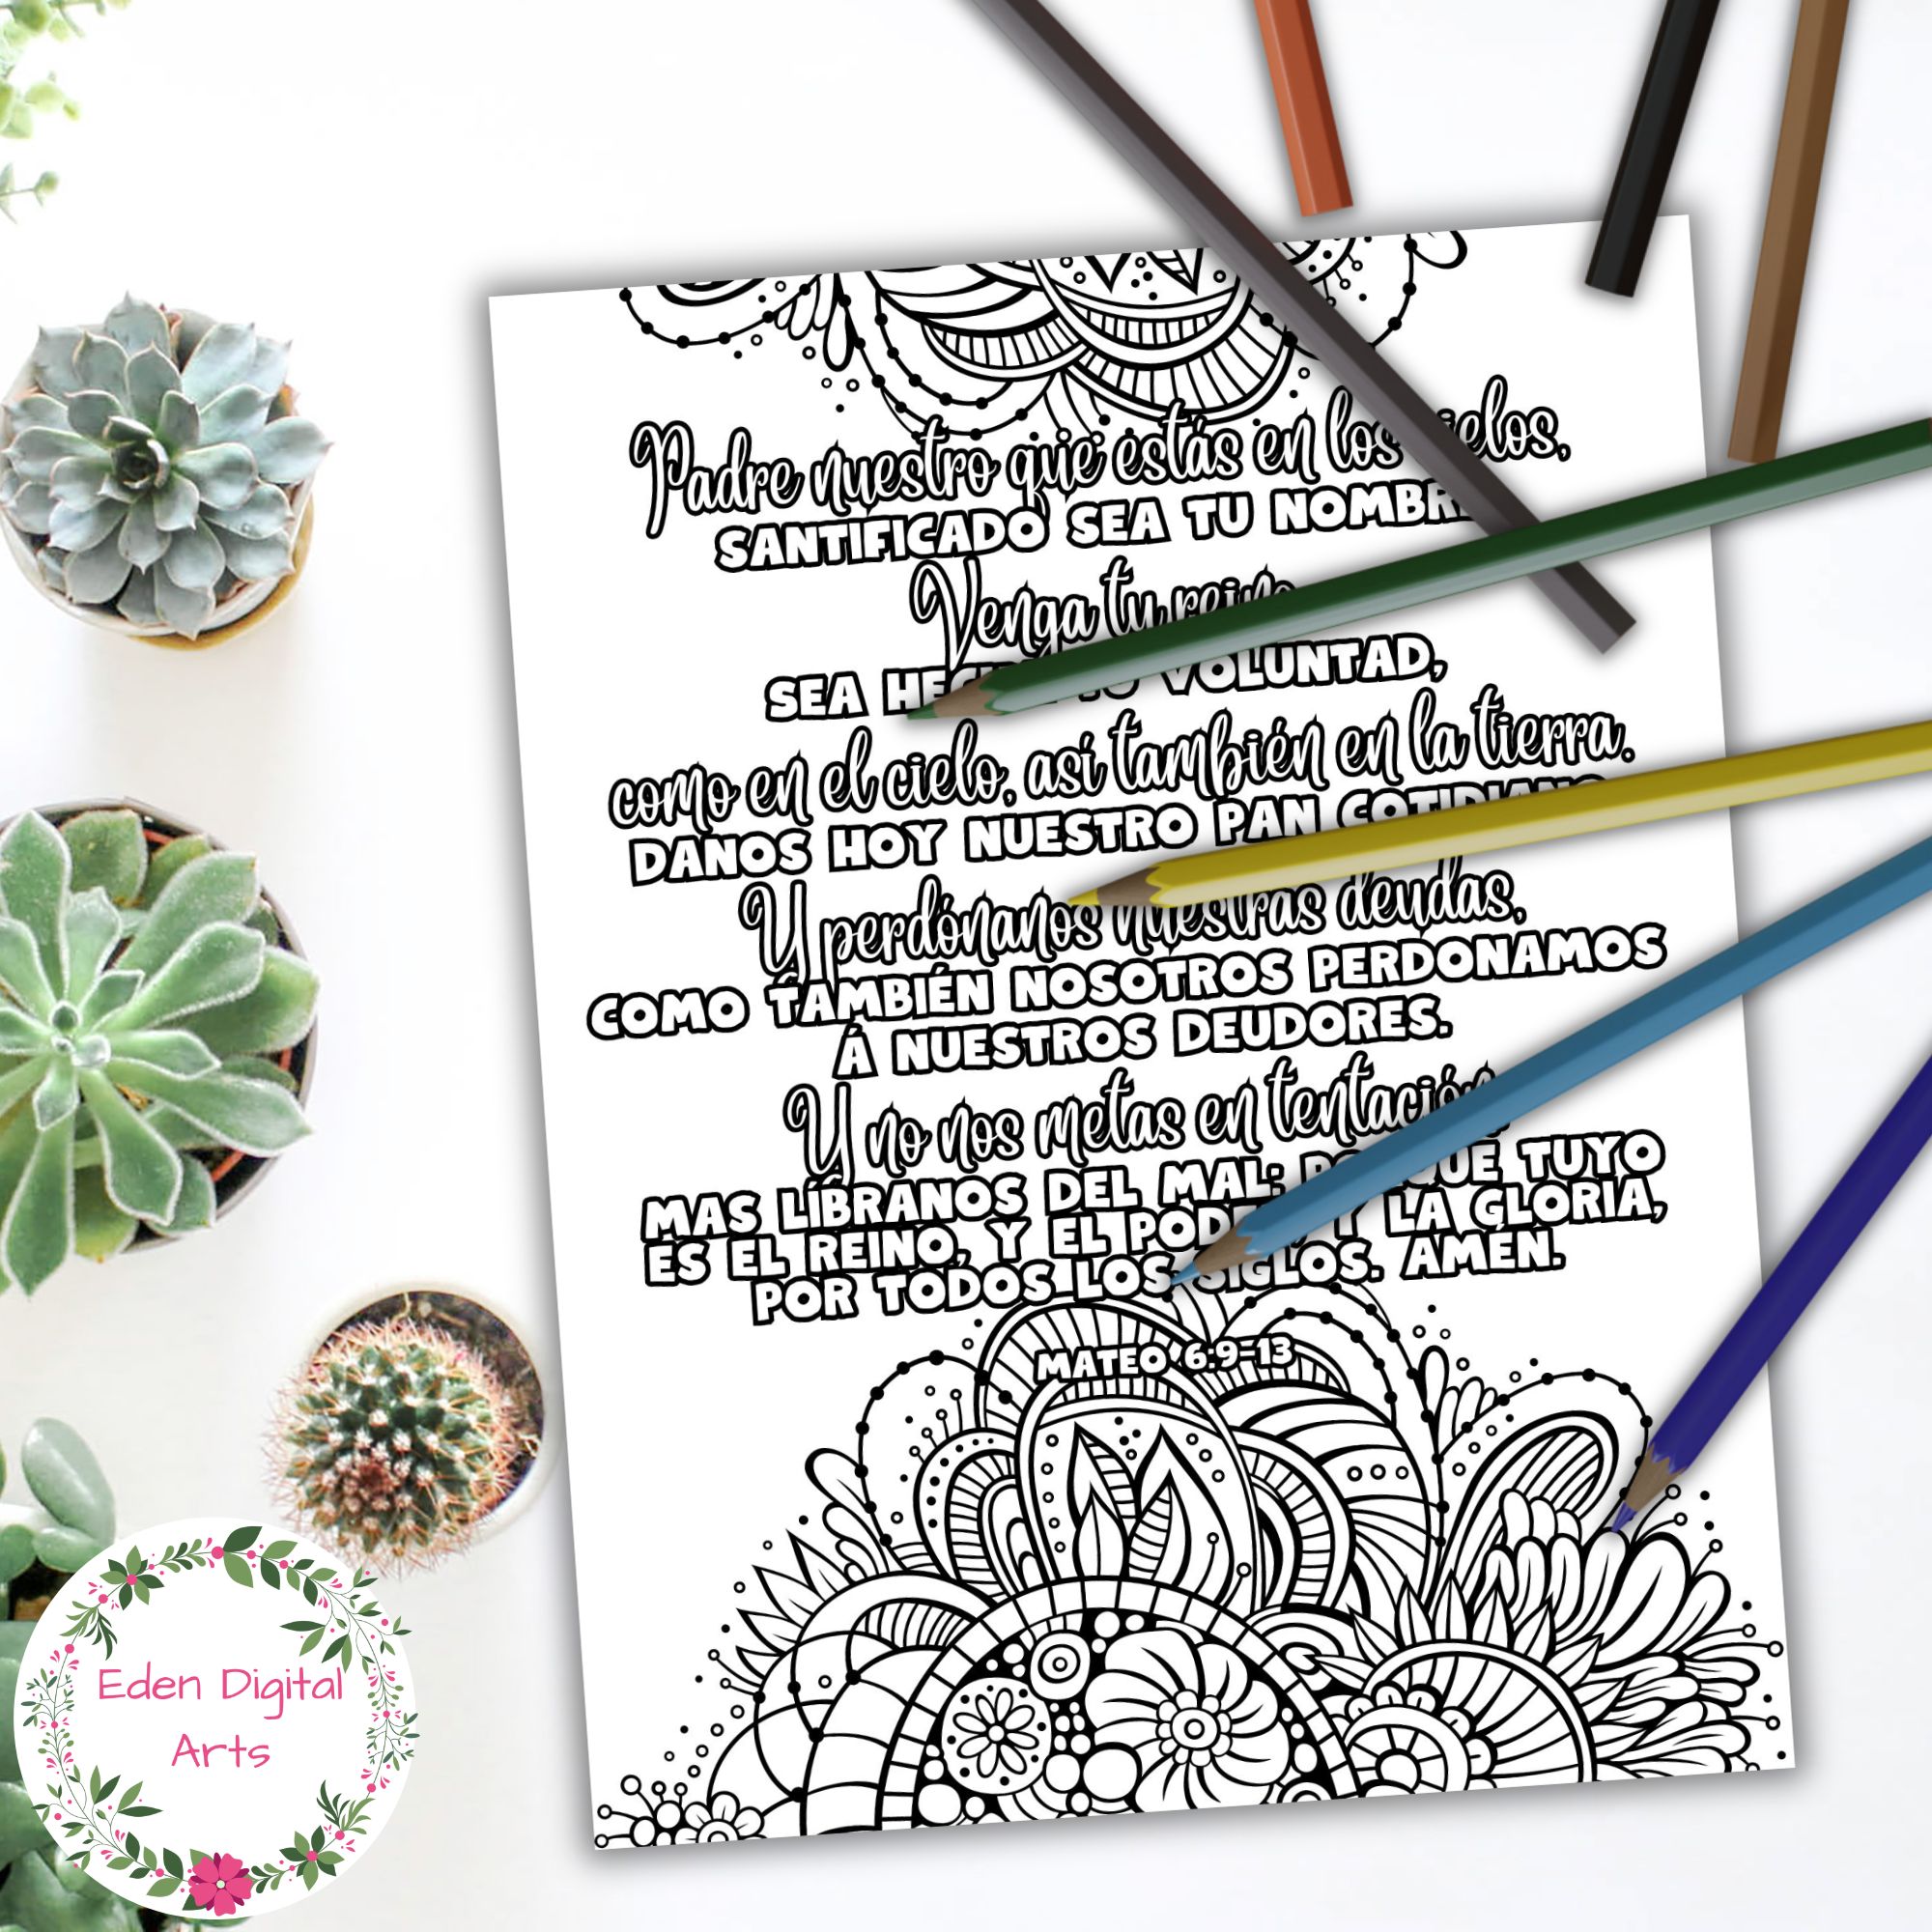 Padre nuestro que estás en los cielos,
SANTIFICADO SEA TU NOMBRE
Venga tu reino
SEA HECHA TU VOLUNTAD,
como en el cielo, así también en la tierra.
DANOS HOY NUESTRO PAN COTIDIANO
Y perdónanos nuestras deudas,
COMO TAMBIÉN NOSOTROS PERDONAMOS
Á NUESTROS DEUDORES.
Y no nos metas en tentación
MAS LÍBRANOS DEL MAL: PORQUE TUYO
ES EL REINO, Y EL PODER, Y LA GLORIA,
POR TODOS LOS SIGLOS. AMÉN.
MATEO 6:9-13
Eden Digital
Arts